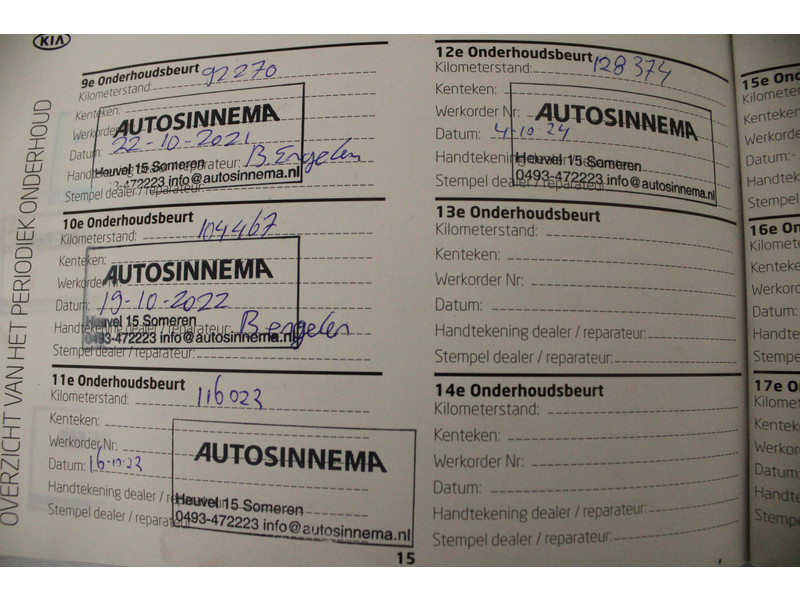 KIA
OVERZICHT VAN HET PERIODIEK ONDERHOUD
9e Onderhoudsbeurt
Kilometerstand: 92270
Kenteken:
AUTOSINNEMA
Datum: 22-10-2021
Heuvel 15 Someren
reparateur: B. Engelen
3-472223 info@autosinnema.nl
Stempel dealer / reparateur:
10e Onderhoudsbeurt
Kilometerstand: 104467
Kenteken:
AUTOSINNEMA
Datum: 19-10-2022
Heuvel 15 Someren
Handtekening dealer / reparateur: B engelen
0493-472223 info@autosinnema.nl
Stempel dealer / reparateur:
11e Onderhoudsbeurt
Kilometerstand: 116023
Kenteken:
Werkorder Nr:
AUTOSINNEMA
Datum: 16-10-23
Handtekening dealer /
Heuvel 15 Someren
Stempel dealer / reparateur:
0493-472223 info@autosinnema.nl
15
12e Onderhoudsbeurt
Kilometerstand: 128374
Kenteken:
Werkorder Nr:
AUTOSINNEMA
Datum: 4-10-24
Handtekening
Heuvel 15 Someren
0493-472223 info@autosinnema.nl
Stempel dealer / reparateur:
13e Onderhoudsbeurt
Kilometerstand:
Kenteken:
Werkorder Nr:
Datum:
Handtekening dealer / reparateur:
Stempel dealer / reparateur:
14e Onderhoudsbeurt
Kilometerstand:
Kenteken:
Werkorder Nr:
Datum:
Handtekening dealer / reparateur:
Stempel dealer / reparateur:
15e Ond
Kilometer
Kenteken
Werkorde
Datum:
Handteke
Stempel
16e On
Kilomete
Kenteke
Werkord
Datum:
Handte
Stempe
17e O
Kilome
Kente
Werko
Datum
Handt
Stemp